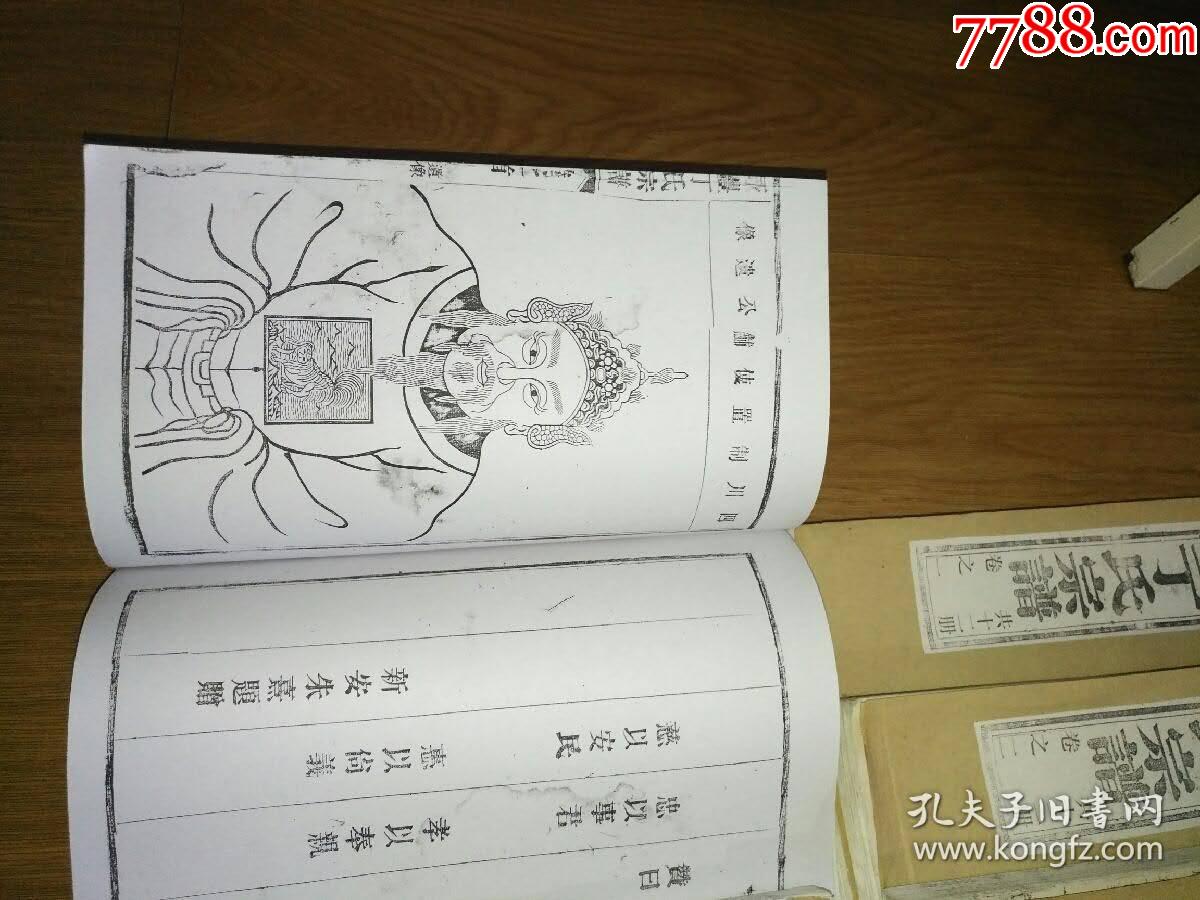 7788.com
四川制置使黼公遺像
丁氏宗譜
遺像
贊曰
忠以事君 孝以奉親
慈以安民 以尚義
新安朱熹題贈
丁氏宗譜
卷之
共十二册
宗譜
卷之
孔夫子旧书网
www.kongfz.com